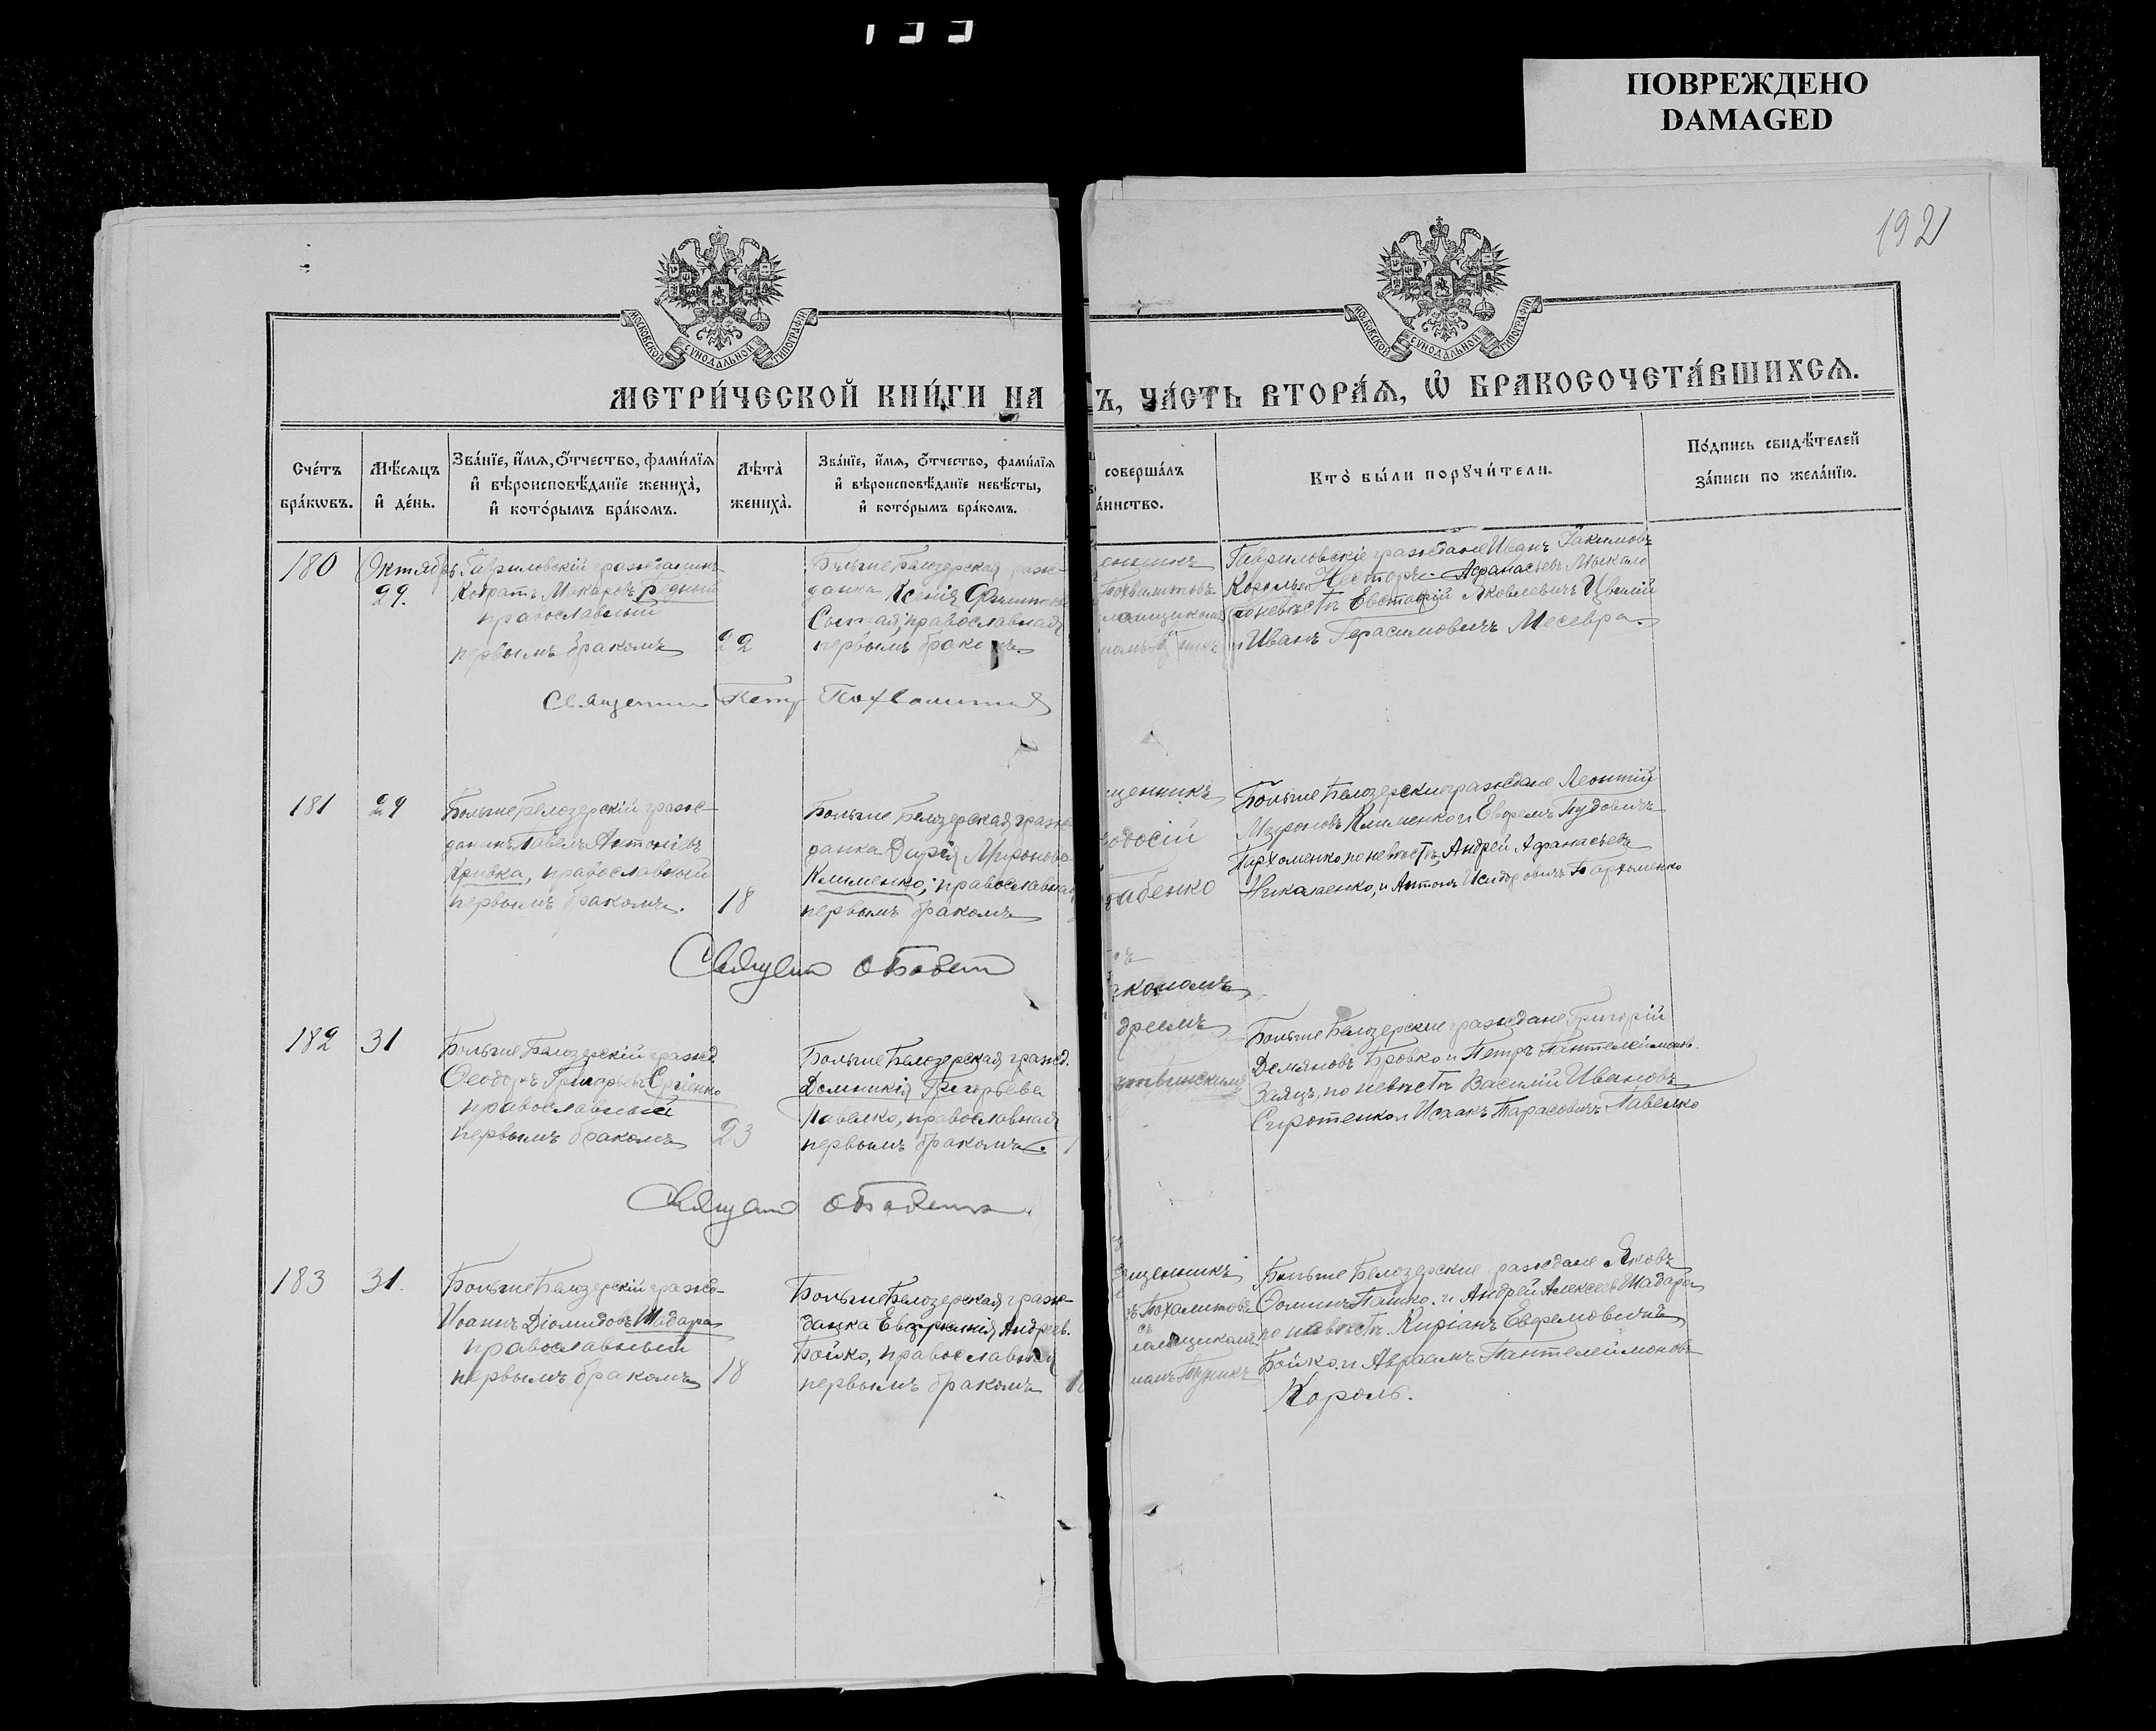 133
ПОВРЕЖДЕНО
DAMAGED
192
МОСКОВСКОЙ СѴНОДАЛЬНОЙ ТИПОГРАФІИ
МОСКОВСКОЙ СѴНОДАЛЬНОЙ ТИПОГРАФІИ
МЕТРИ́ЧЕСКОЙ КНИ́ГИ НА
Ъ, ЧА́СТЬ ВТОРА́Ѧ, Ѽ БРАКОСОЧЕТА́ВШИХСѦ.
Сче́тъ
бра́кѡвъ.
Мѣ́сѧцъ
и҆ де́нь.
Зва́нїе, и҆́мѧ, ѻ҆́тчество, фами́лїѧ
и҆ вѣроисповѣ́данїе жениха̀,
и҆ кото́рымъ бра́комъ.
Лѣ́та
жениха̀.
Зва́нїе, и҆́мѧ, ѻ҆́тчество, фами́лїѧ
и҆ вѣроисповѣ́данїе невѣ́сты,
и҆ кото́рымъ бра́комъ.
соверша́лъ
а́инство.
Кто̀ бы́ли порꙋчи́тели.
По́дпись свидѣ́телей
за́писи по жела́нїю.
180
Октябрь
29.
Гавриловскій гражданинъ
Кодратъ Макаровъ Редный
православный
первымъ бракомъ
22
Больше Белозерская граж-
данка Ксенія
Сытая, православная
первымъ бракомъ
Гавриловскіе граждане Иванъ Іакимовъ
Король и Несторъ Афанасьевъ
по невѣстѣ Евстафій Яковлевичъ
и Иванъ Герасимовичъ Месевра
Священник Петр Похвалитов
181
29
Больше Белозерскій граж-
данинъ Павелъ Антоніевъ
Кривка, православный
первымъ бракомъ.
18
Больше Белозерская граж-
данка Дарія Миронова
Клименко, православная
первымъ бракомъ
щенникъ
одосій
бабенко
Больше Белозерские граждане Леонтій
Мироновъ Клименко и Ефремъ Іудовичъ
Пархоменко по невѣстѣ, Андрей Афанасьевъ
и Антонъ Исидоровичъ Пархоменко
182
31
Больше Белозерскій гражд.
Феодоръ Григорьевъ Сргіенко
православный
первымъ бракомъ
23
Больше Белозерская гражд.
Домникія Григорьева
Павелко, православная
первымъ бракомъ.
кономъ
дреемъ
Больше Белозерские граждане Григорій
Демяновъ Бровко и Петръ Пантелеимонов.
Заяцъ, по невѣстѣ Василій Ивановъ
Сиротенко и Исаакъ Тарасовичъ Павелко
183
31.
Больше Белозерскій гражд-
Иоаннъ Діомидовъ Шадара
православный
первымъ бракомъ
18
Больше Белозерская граж-
данка Евгенія Андреев.
Бойко, православная
первымъ бракомъ
щенникъ
Больше Белозерские граждане Яковъ
Фоминъ Пашко. и Андрей Алексеевъ Шадара
по невѣстѣ Киріанъ Ефремовичъ
Бойко. и Авраамъ Пантелеймоновъ
Король.